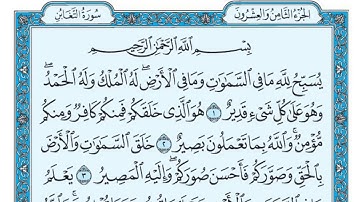 الجزء الثامن والعشرون سورة التغابن
بِسْمِ اللَّهِ الرَّحْمَٰنِ الرَّحِيمِ
يُسَبِّحُ لِلَّهِ مَا فِي السَّمَٰوَٰتِ وَمَا فِي الْأَرْضِ ۖ لَهُ الْمُلْكُ وَلَهُ الْحَمْدُ ۖ
وَهُوَ عَلَىٰ كُلِّ شَيْءٍ قَدِيرٌ ١ هُوَ الَّذِي خَلَقَكُمْ فَمِنكُمْ كَافِرٌ وَمِنكُم
مُّؤْمِنٌ ۚ وَاللَّهُ بِمَا تَعْمَلُونَ بَصِيرٌ ٢ خَلَقَ السَّمَٰوَٰتِ وَالْأَرْضَ
بِالْحَقِّ وَصَوَّرَكُمْ فَأَحْسَنَ صُوَرَكُمْ ۖ وَإِلَيْهِ الْمَصِيرُ ٣ يَعْلَمُ